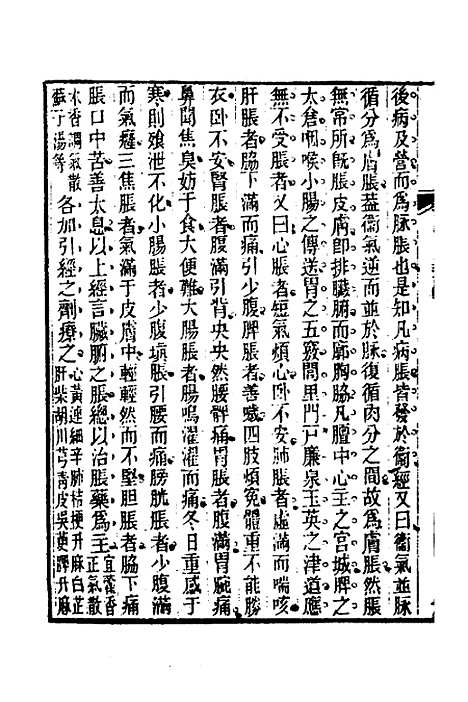 後病及營而爲脉脹也是知凡病脹皆發於衞經又曰衞氣並脉
循分爲膚脹蓋衞氣逆而並於脉復循肉分之間故爲膚脹然脹
無常所旣脹皮膚卽排臟腑而廓胸脇凡膻中心主之宮城脾之
太倉咽喉小腸之傳送胃之五竅閭里門戸廉泉玉英之津道應
無不受脹者又曰心脹者短氣煩心臥不安肺脹者虛滿而喘咳
肝脹者脇下滿而痛引少腹脾脹者善噦四肢煩寃體重不能勝
衣臥不安腎脹者腹滿引背央央然腰髀痛胃脹者腹滿胃脘痛
鼻聞焦臭妨于食大便難大腸脹者腸鳴濯濯而痛冬日重感于
寒則飱泄不化小腸脹者少腹塡脹引腰而痛膀胱脹者少腹滿
而氣癃三焦脹者氣滿于皮膚中輕輕然而不堅膽脹者脇下痛
脹口中苦善太息以上經言臟腑之脹總以治脹藥爲主宜藿香正氣散
木香調氣散蘇子湯等各加引經之劑療之心黃連細辛肺桔梗升麻白芷肝柴胡川芎靑皮吳茰脾升麻